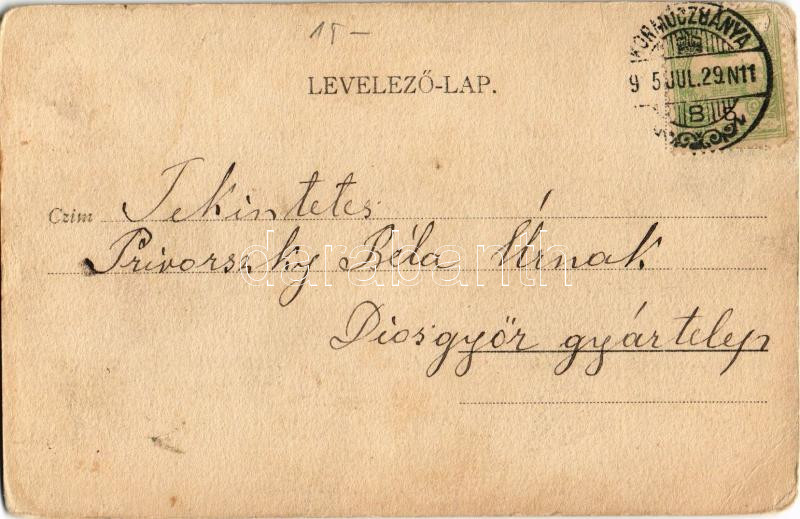 15 –
LEVELEZŐ-LAP.
KÖRMÖCZBÁNYA
9 5 JUL. 29. N11
8 b
Czim Tekintetes
Privorszky Béla Úrnak
darabanth
Diosgyőr gyártelep